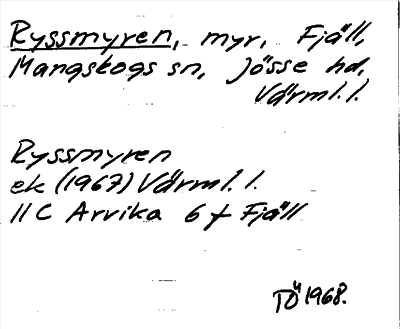 Ryssmyren, myr, Fjäll,
Mangskogs sn, Jösse hd,
Värml. l.
Ryssmyren
ek (1967) Värml. l.
11 C Arvika 6 f Fjäll
TÖ 1968.